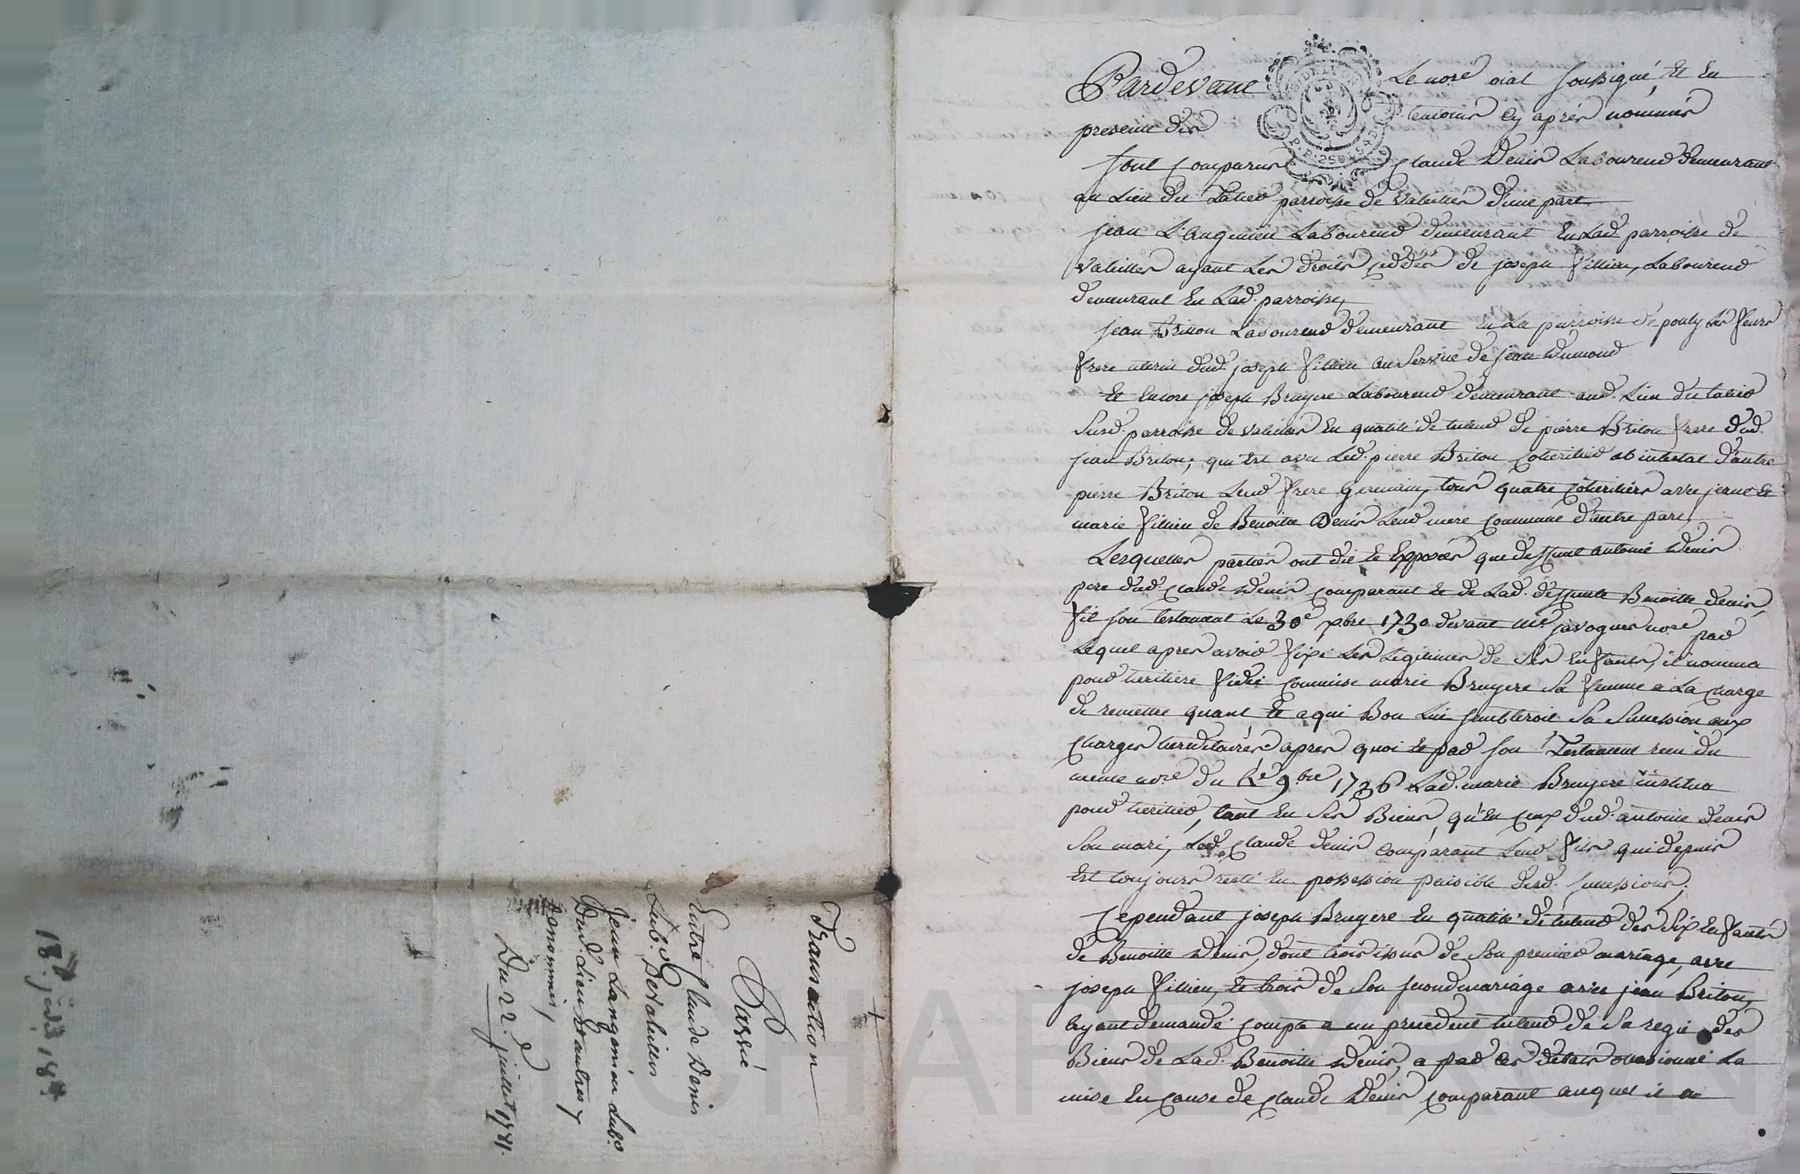 Pardevant Le nore roial soussigné, Et En
presence des temoins cy après nommés
sont comparus Claude Denis Laboureur demeurant
au Lieu du parroisse de Valeilles d'une part,
jean L'angenieu Laboureur demeurant En Lad. parroisse de
Valeilles ayant Les droits ceddés de joseph fillieu, Laboureur
demeurant En Lad. parroisse,
jean Briton Laboureur demeurant En La parroisse de pouly Les feurs
frere uterin dud. joseph fillieu au Service de jean Dumond
Et Encore joseph Bruyere Laboureur demeurant aud. Lieu du
Susd. parroisse de Valeilles En qualité de tuteur de pierre Briton frere dud.
jean Briton; qui Est avec Led. pierre Briton Coheritier ab intestat d'autre
pierre Briton Leur frere germain, tous quatre Coheritiers avec jeanne Et
marie fillieu de Benoitte Denis Leur mere Commune d'autre part,
Lesquelles parties ont dit Et Exposés que deffunt antoine Denis
pere dud. Claude Denis comparant Et de Lad. deffunte Benoitte Denis,
fit son testament Le 30e xbre 1730 devant Me javogues nore par
Lequel apres avoir fixé Les Legitimes de Ses Enfants, il nomma
pour heritiere fidei Commise marie Bruyere Sa femme a La charge
de remettre quant Et a qui Bon Lui Sembleroit Sa Succession aux
charges hereditaires apres quoi Et par son Testament reçu du
meme nore du 9bre 1736 Lad. marie Bruyere institua
pour heritier, tant En Ses Biens qu'En ceux dud. antoine Denis
Son mari, Led. Claude Denis comparant Leur fils qui depuis
Est toujours resté En possession paisible desd. successions;
Cependant joseph Bruyere En qualité de tuteur des six Enfants
de Benoitte Denis, dont trois issus de Son premier mariage, avec
joseph fillieu, Et trois de Son second mariage avec jean Briton,
Ayant demandé compte a un precedent tuteur de Sa regie des
Biens de Lad. Benoitte Denis, a par Ces debats occasionné La
mise En Cause de Claude Denis comparant auquel il a
Transaction
Passée
Entre Claude Denis
Lab.r De Valeilles
Jean Langenieu Lab.r
Dud. Lieu Et autres y
denommés,
Du 2 juillet 1781.
SCICHARTXRUN